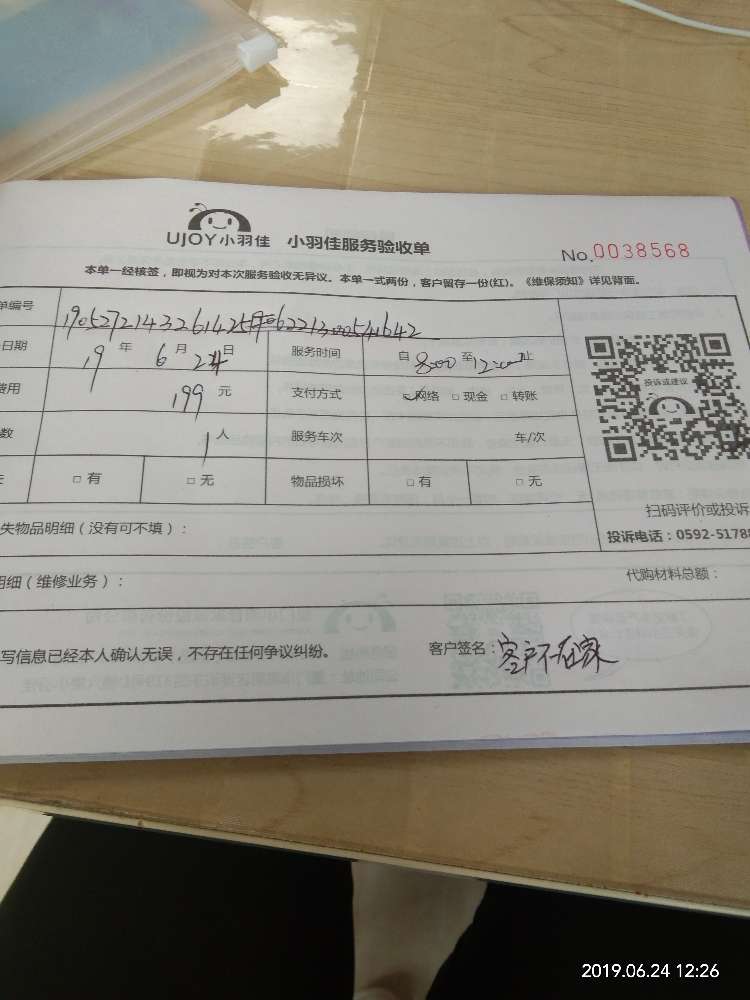 UJOY小羽佳 小羽佳服务验收单
No.0038568
本单一经核签，即视为对本次服务验收无异议。本单一式两份，客户留存一份(红)。《维保须知》详见背面。
单编号
日期 19 年 6 月 24 日 服务时间 自 8:00 至 12:00 止
费用 199 元 支付方式 ☑网络 □现金 □转账
数 1 人 服务车次 车/次
□有 □无 物品损坏 □有 □无
投诉或建议
扫码评价或投诉
投诉电话：0592-5178
失物品明细（没有可不填）：
明细（维修业务）： 代购材料总额：
写信息已经本人确认无误，不存在任何争议纠纷。 客户签名：客户不在家
2019.06.24 12:26